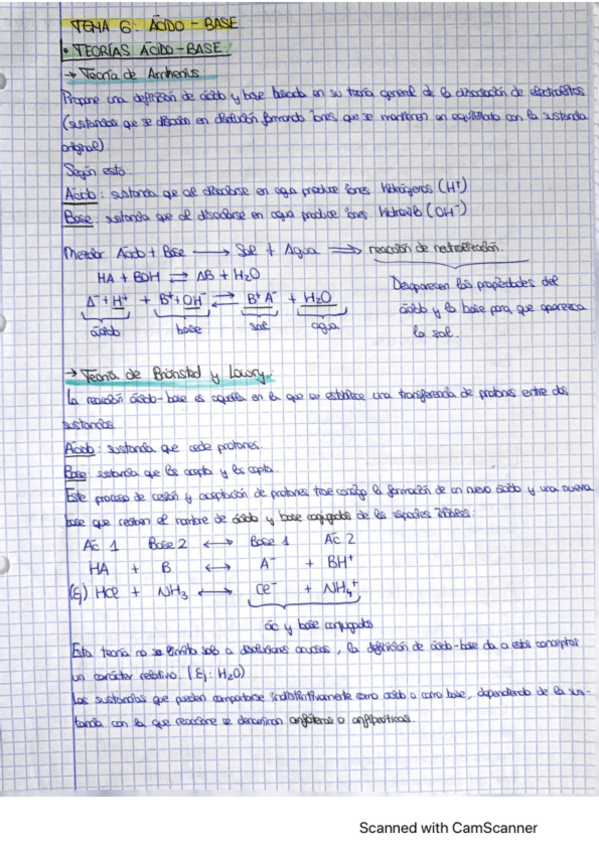 TEMA 6: ÁCIDO - BASE
• TEORÍAS ÁCIDO - BASE
→ Teoría de Arrhenius
Propone una definición de ácido y base basada en su teoría general de la disociación de electrolitos
(sustancias que se disocian en disolución formando iones que se mantienen en equilibrio con la sustancia
original)
Según esto:
Ácido: sustancia que al disociarse en agua produce iones hidrógenos (H⁺)
Base: sustancia que al disociarse en agua produce iones hidroxilo (OH⁻)
Mezclar Ácido + Base → Sal + Agua ⇒ reacción de neutralización.
HA + BOH ⇌ AB + H₂O
A⁻ + H⁺ + B⁺ + OH⁻ ⇌ B⁺A⁻ + H₂O
ácido base sal agua
Desaparecen las propiedades del
ácido y la base para que aparezca
la sal.
→ Teoría de Brönsted y Lowry:
La reacción ácido-base es aquella en la que se establece una transferencia de protones entre dos
sustancias
Ácido: sustancia que cede protones.
Base: sustancia que los acepta y los capta.
Este proceso de cesión y aceptación de protones trae consigo la formación de un nuevo ácido y una nueva
base que reciben el nombre de ácido y base conjugados de las especies
Ác 1 Base 2 ↔ Base 1 Ác 2
HA + B ↔ A⁻ + BH⁺
(Ej) HCl + NH₃ ↔ Cl⁻ + NH₄⁺
ác y base conjugados
Esta teoría no se limita solo a disoluciones acuosas, la definición de ácido-base da a estos conceptos
un carácter relativo. (Ej: H₂O)
Las sustancias que pueden comportarse indistintivamente como ácido o como base, dependiendo de la sus-
tancia con la que reaccione se denominan anfóteras o anfipróticas.
Scanned with CamScanner